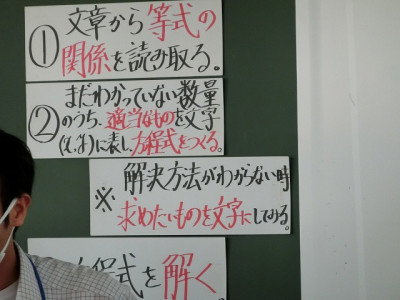 ① 文章から等式の
関係を読み取る。
まだわかっていない数量
② のうち、適当なものを文字
(x,y)に表し、方程式をつくる。
※ 解決方法がわからない時
求めたいものを文字にしてみる。
程式を解く